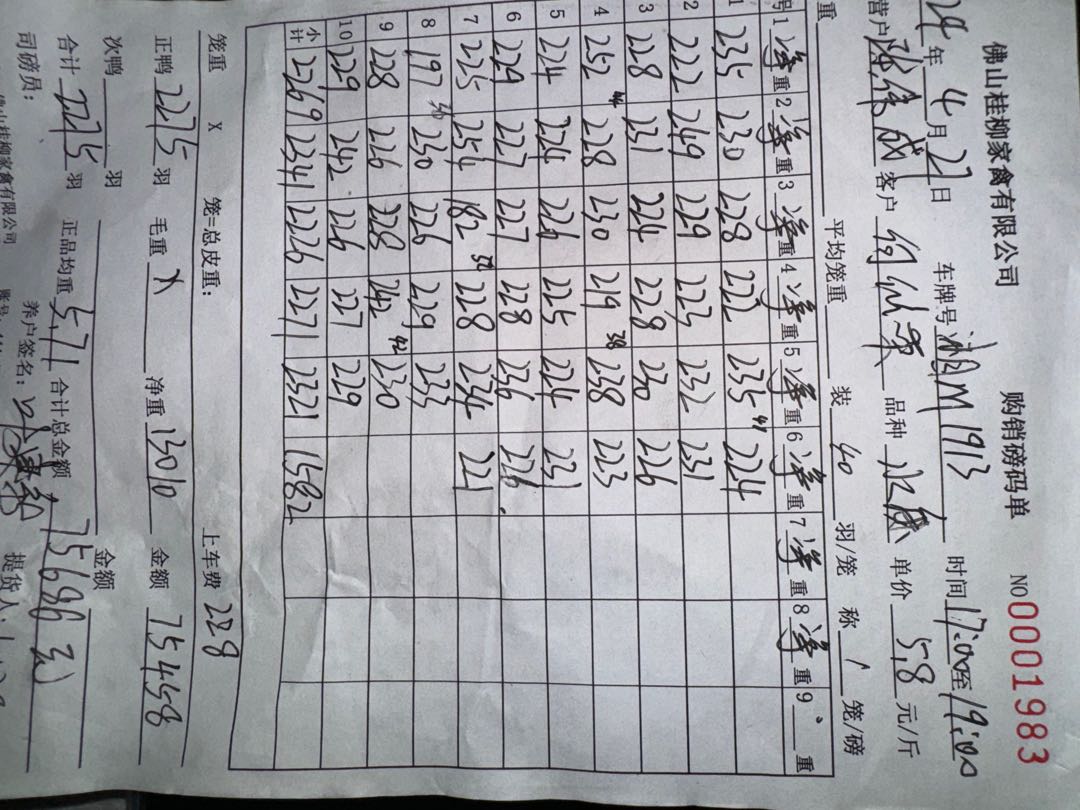 佛山桂柳家禽有限公司 购销磅码单 NO 0001983
24年4月27日 车牌号 湘M1913 时间 17:00至19:00
营户 客户 品种 单价 5.8 元/斤
重 平均笼重 装 40 羽/笼 称 1 笼/磅
号 1 净重 2 净重 3 净重 4 净重 5 净重 6 净重 7 净重 8 净重 9 重
1 235 230 228 222 235 41 224
2 222 249 229 223 232 231
3 228 231 224 228 230 226
4 252 44 228 230 219 38 238 223
5 224 224 226 225 224 231
6 229 227 227 228 236 226
7 225 254 182 32 228 234 221
8 197 34 230 226 229 233
9 228 226 228 242 42 230
10 229 242 226 227 229
小计 2269 2341 2226 2271 2321 1582
笼重 X 笼=总皮重: 上车费 228
正鸭 2275 羽 毛重 X 净重 13010 金额 75458
次鸭 羽 金额
合计 2275 羽 正品均重 5.71 合计总金额 75686元
司磅员: 养户签名: 提货人:
佛山桂柳家禽有限公司 账号